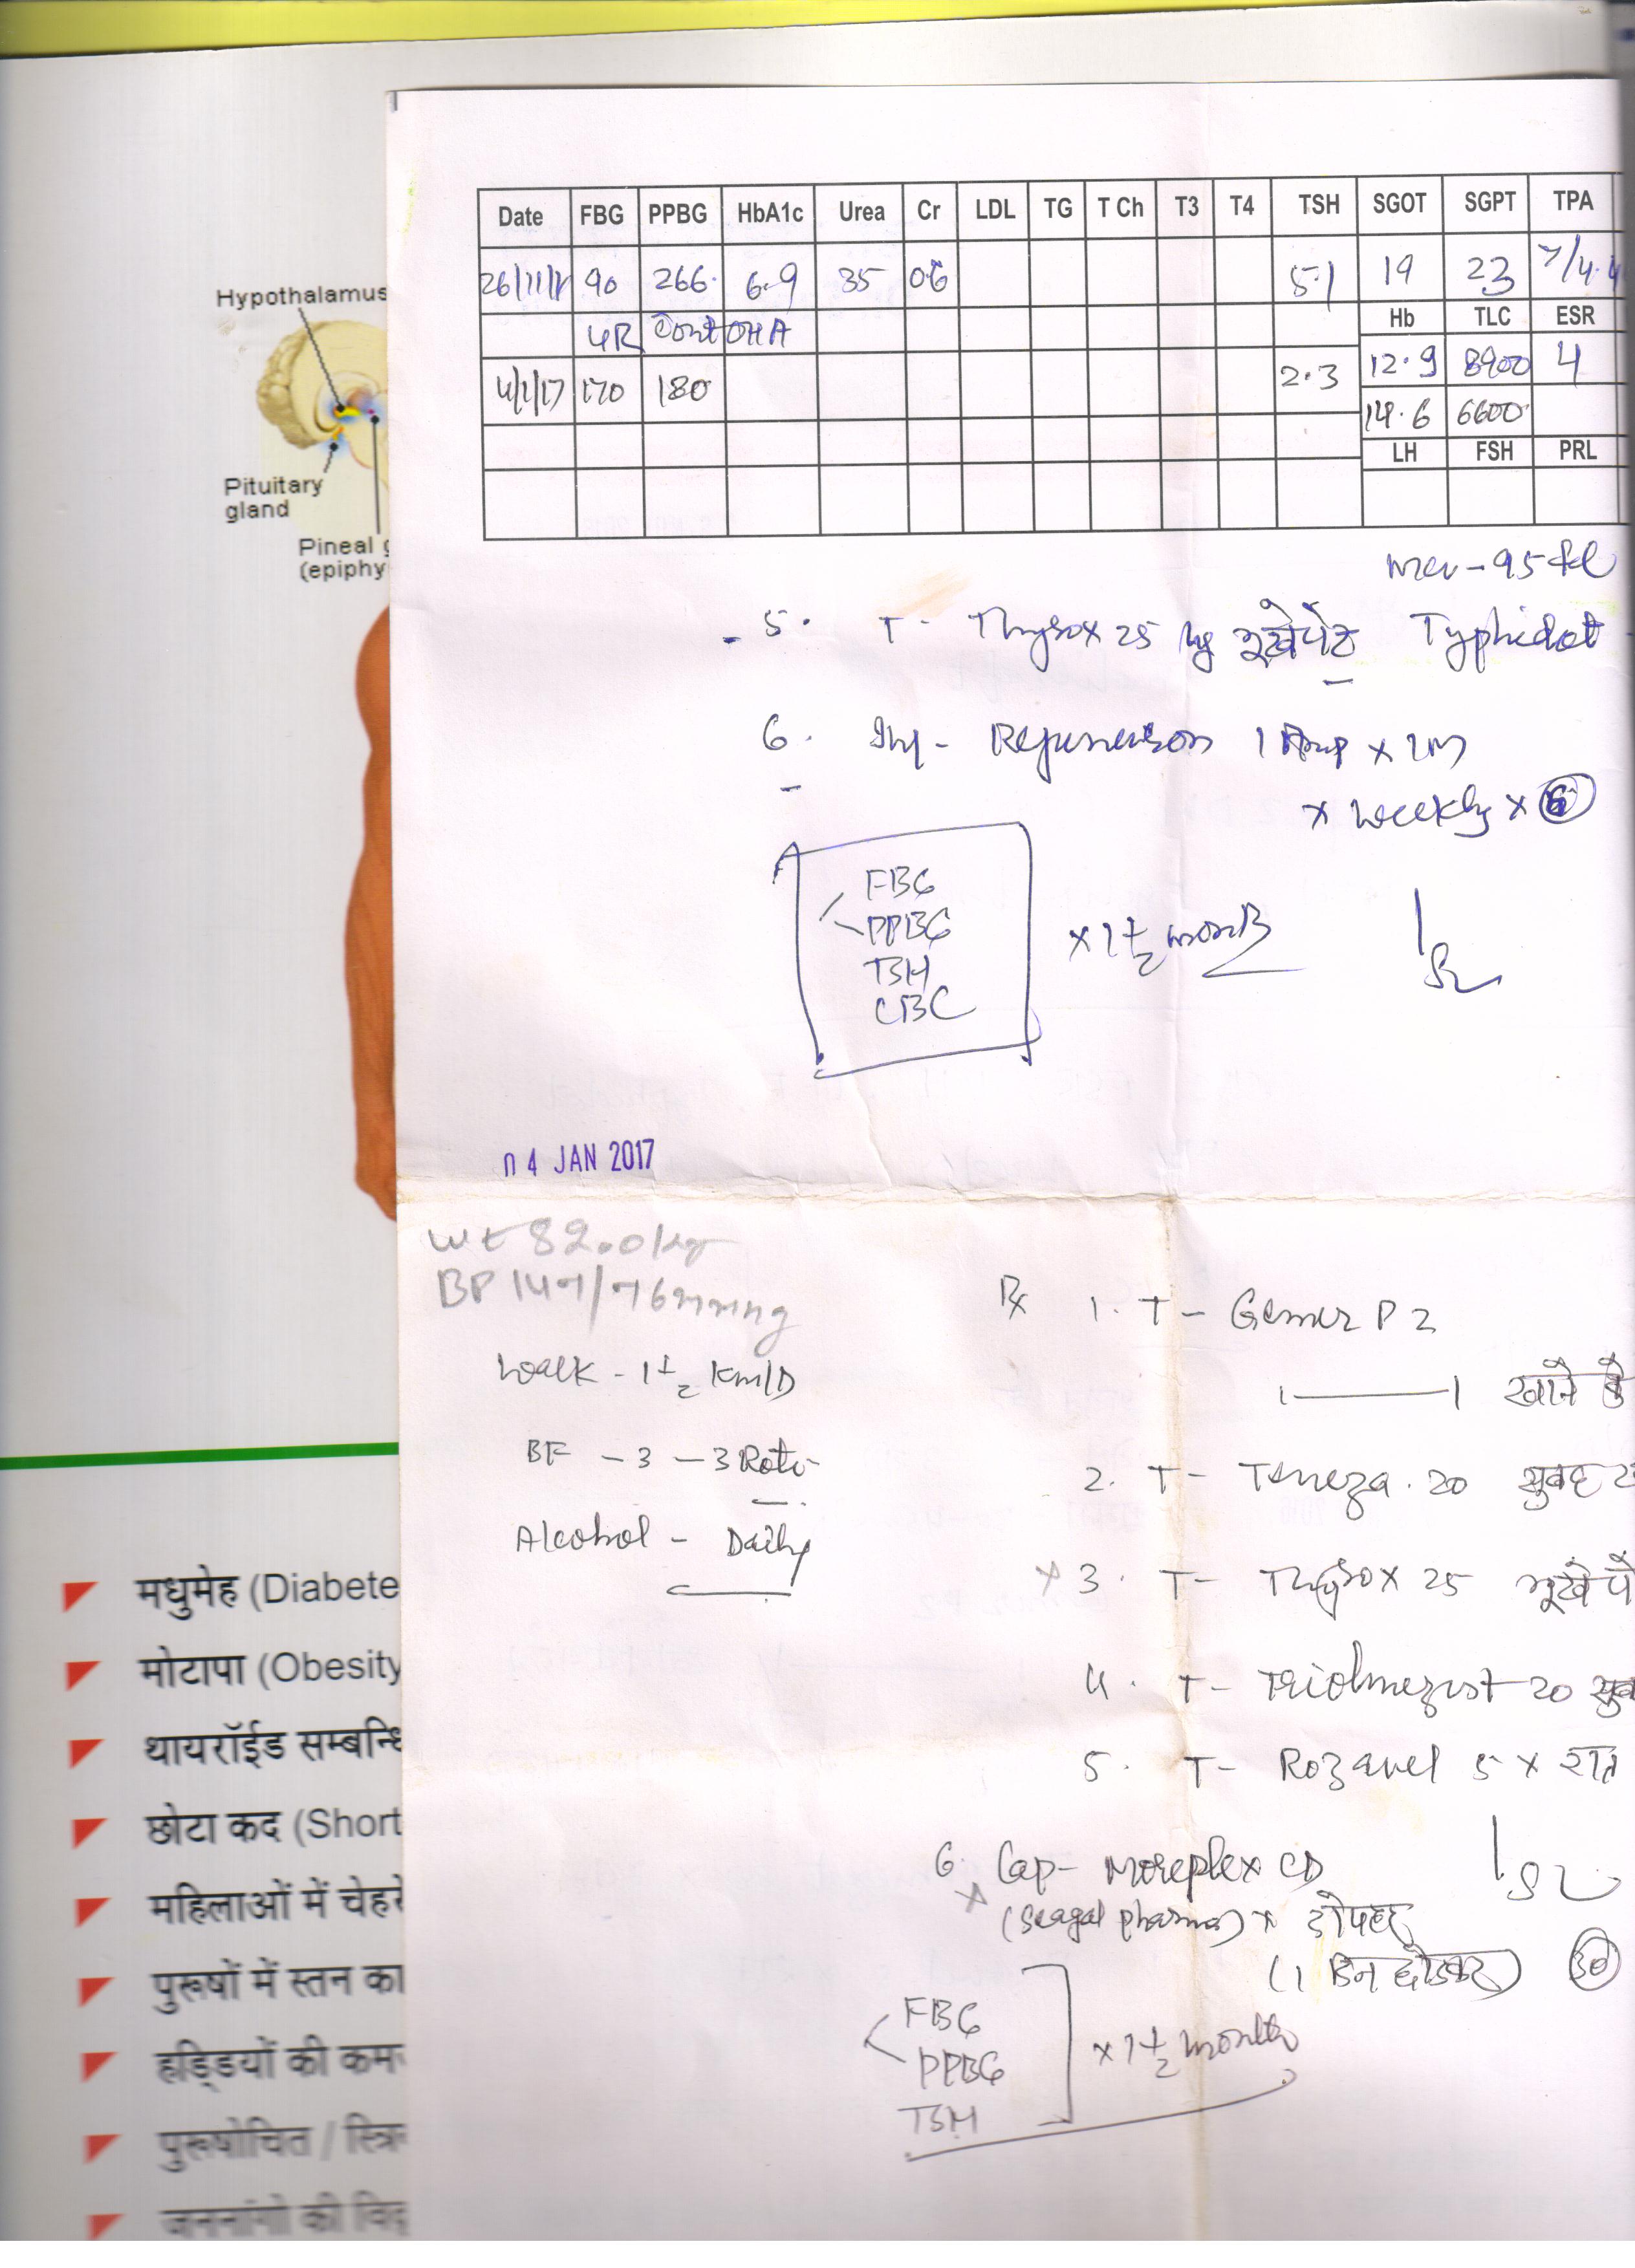 Hypothalamus
Pituitary
gland
Pineal g
(epiphy
Date FBG PPBG HbA1c Urea Cr LDL TG T Ch T3 T4 TSH SGOT SGPT TPA
26/11/ 90 266 6.9 35 0.6 5.1 19 23 7/4.4
Hb TLC ESR
UR Cont OHA
12.9 8900 4
4/1/17 170 180 2.3
14.6 6600
LH FSH PRL
mcv - 95 fl
5. T- Thyrox 25 भूखे पेट Typhidot -
6. Inj- Rejunuron 1 Amp x IM
x weekly x 6
FBG
PPBG
TSH
CBC
x 1 1/2 month
04 JAN 2017
Wt 82.0 kg
BP 147/76mmHg
Walk - 1 1/2 Km/D
BF - 3 - 3 Roti
Alcohol - Daily
Rx 1. T- Gemer P 2
1 — 1 खाने के
2. T- Teneza. 20 सुबह
x 3. T- Thyrox 25 भूखे पे
4. T- Triolmezest 20 सुब
5. T- Rozavel 5 x रात
6. Cap- Moreplex CD
x (Seagal pharma) x दोपहर
(1 दिन छोड़कर) 30
FBG
PPBG
TSH
x 1 1/2 month
मधुमेह (Diabete
मोटापा (Obesity
थायरॉईड सम्बन्धि
छोटा कद (Short
महिलाओं में चेहरे
पुरूषों में स्तन का
हड्डियों की कम
पुरूषोचित / स्त्रि
जननांगो की वि